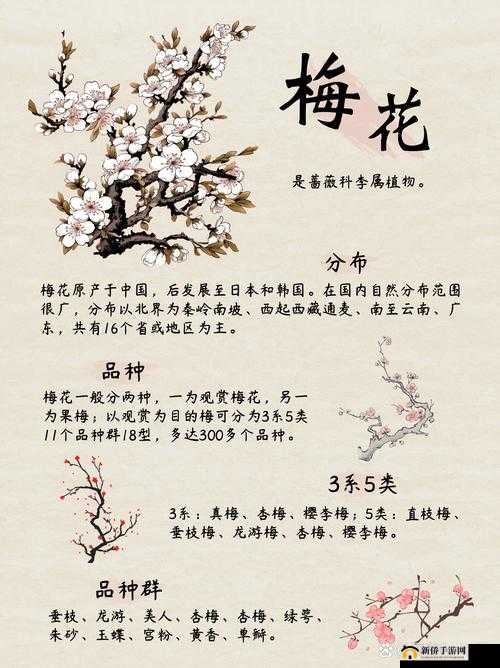 梅花
是蔷薇科李属植物。
分布
梅花原产于中国，后发展至日本和韩国。在国内自然分布范围
很广，分布以北界为秦岭南坡、西起西藏通麦、南至云南、广
东，共有16个省或地区为主。
品种
梅花一般分两种，一为观赏梅花，另一
为果梅；以观赏为目的梅可分为3系5类
11个品种群18型，多达300多个品种。
3系5类
3系：真梅、杏梅、樱李梅；5类：直枝梅、
垂枝梅、龙游梅、杏梅、樱李梅。
品种群
垂枝、龙游、美人、杏梅、杏梅、绿萼、
朱砂、玉蝶、宫粉、黄香、单瓣。
新侨手游网